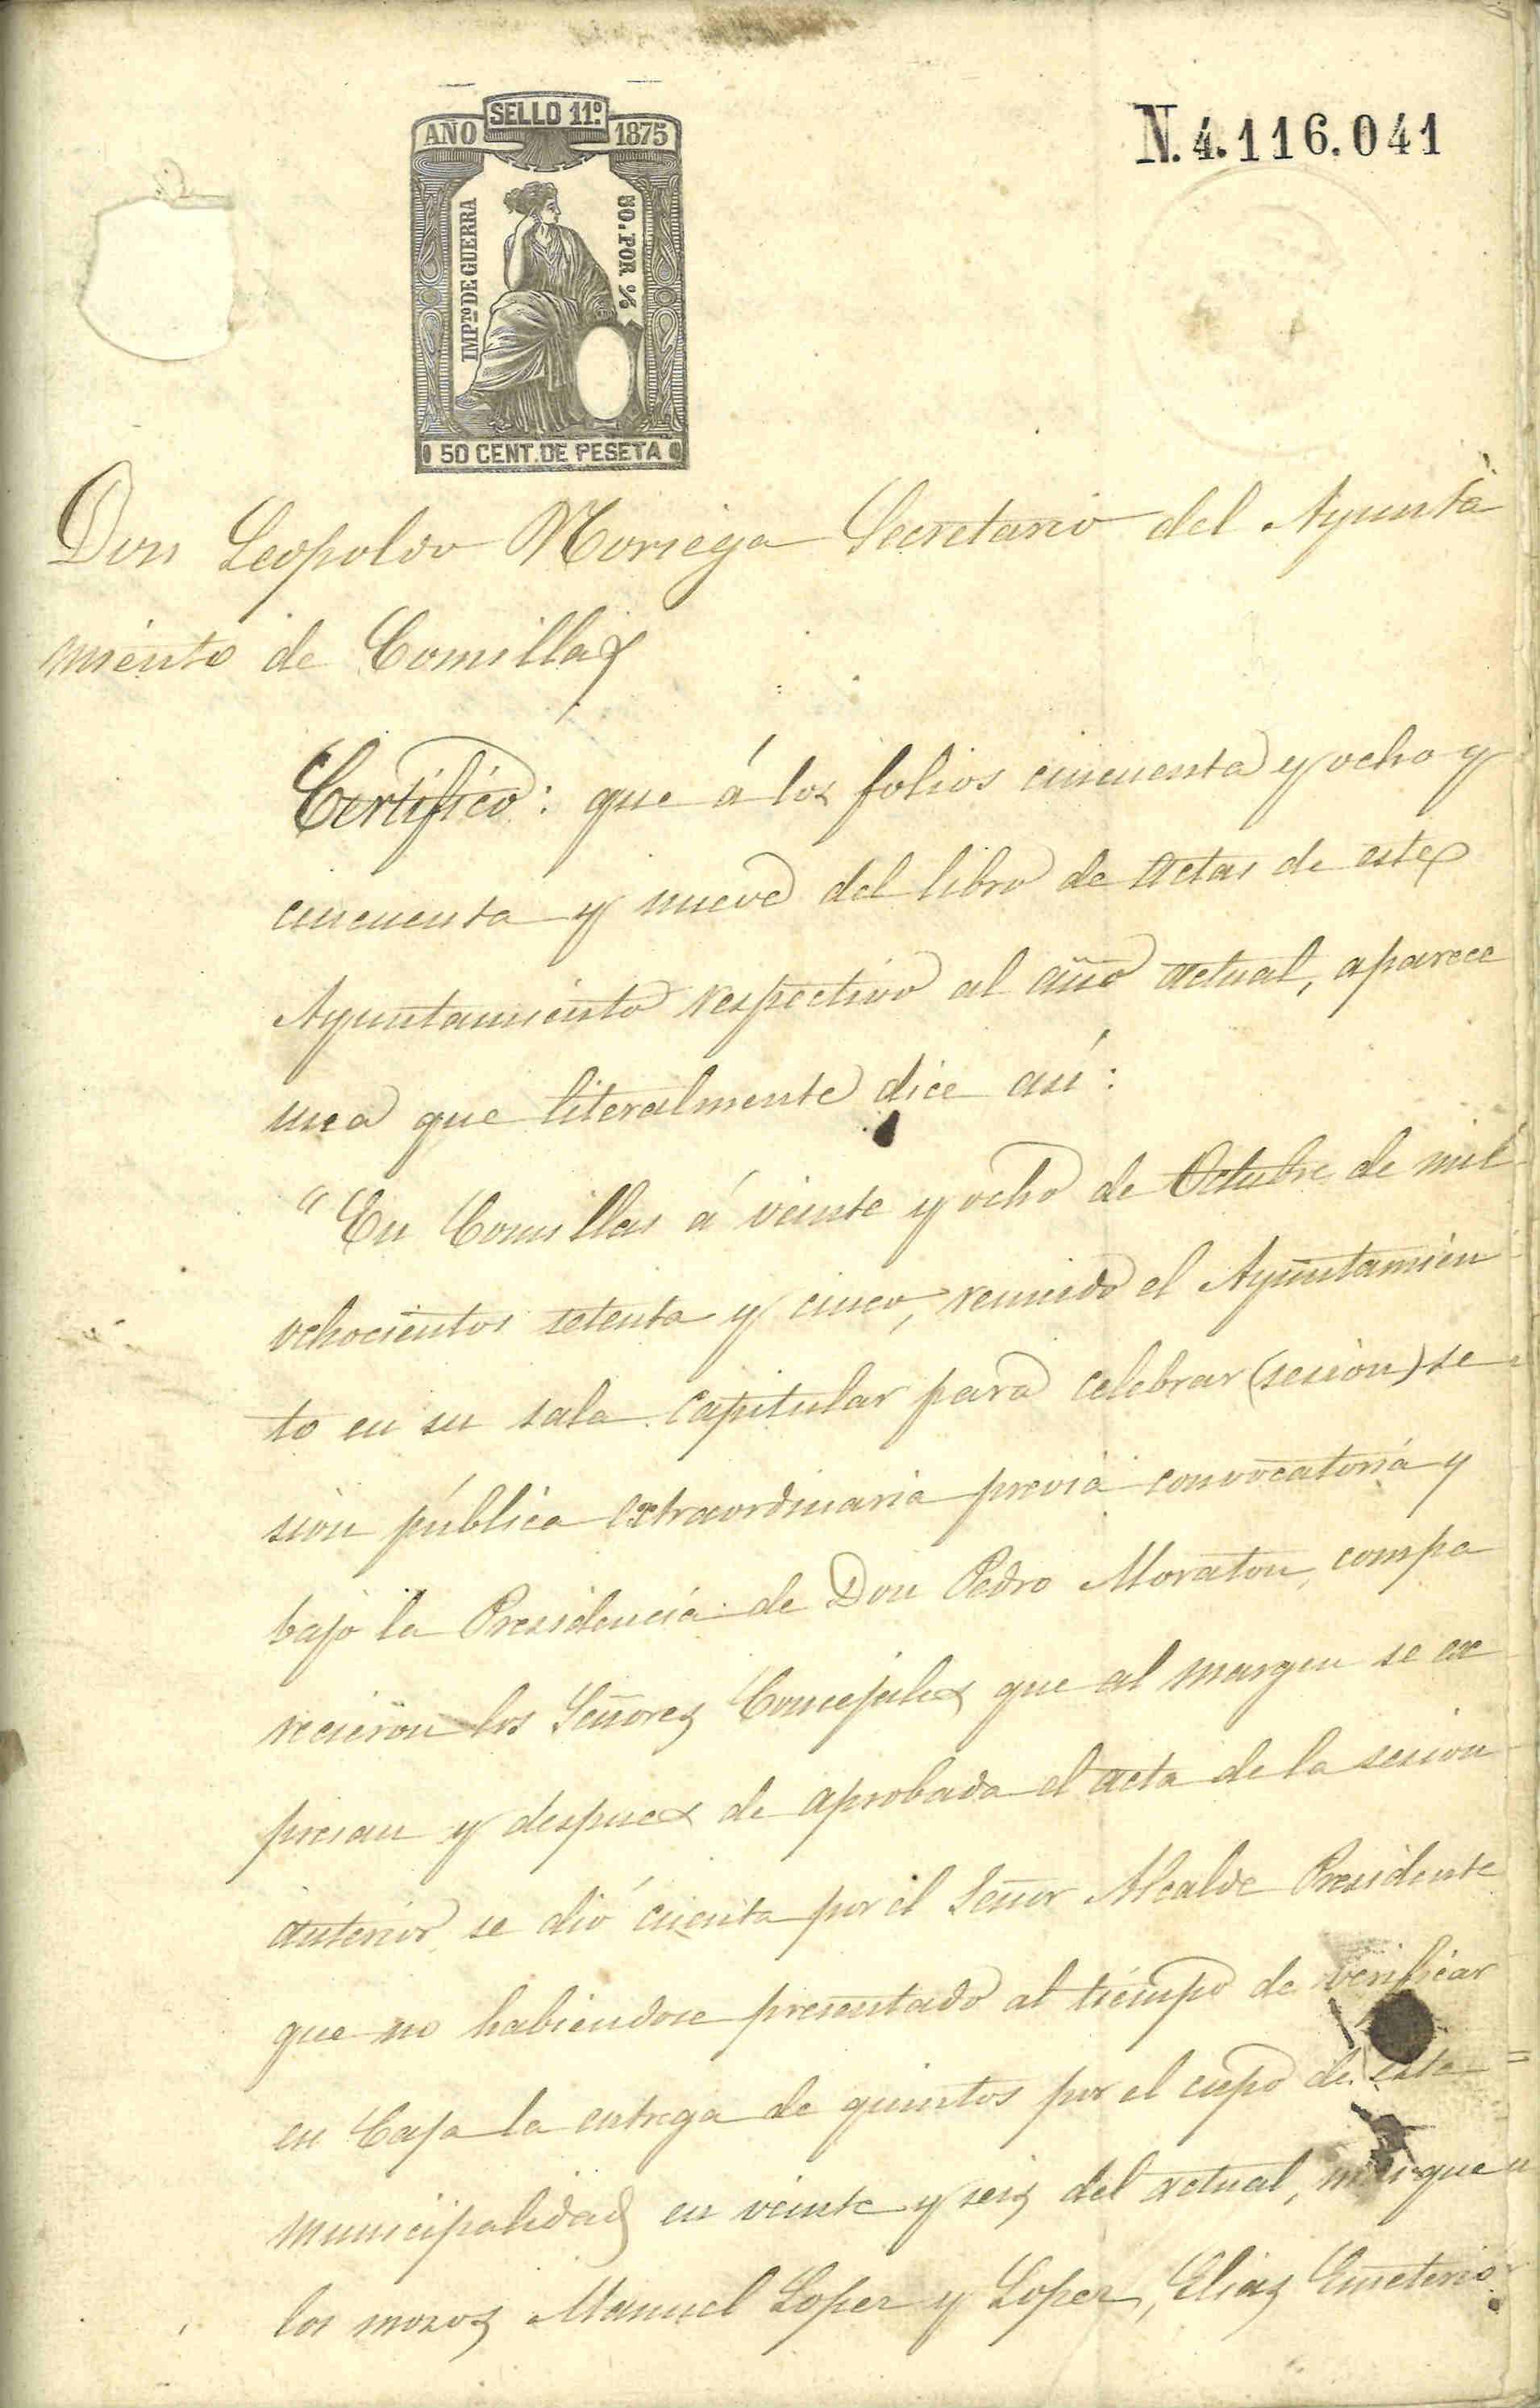 SELLO 11º
AÑO 1875
N. 4.116.041
IMPTO DE GUERRA
50. POR %
50 CENT. DE PESETA
Don Leopoldo Noriega Secretario del Ayunta
miento de Comillas
Certifico: que á los folios cincuenta y ocho y
cincuenta y nueve del libro de actas de este
Ayuntamiento respectivo al año actual, aparece
una que literalmente dice así:
"En Comillas á veinte y ocho de Octubre de mil
ochocientos setenta y cinco, reunido el Ayuntamien
to en su sala capitular para celebrar (sesion) se
sion pública extraordinaria previa convocatoria y
bajo la Presidencia de Don Pedro Moraton, compa
recieron los Señores Concejales que al margen se ex
presan y despues de aprobada el acta de la sesion
anterior se dió cuenta por el Señor Alcalde Presidente
que no habiendose presentado al tiempo de verificar
en Caja la entrega de quintos por el cupo de este
municipalidad en veinte y seis del actual,
los mozos Manuel Lopez y Lopez, Elias Emeterio